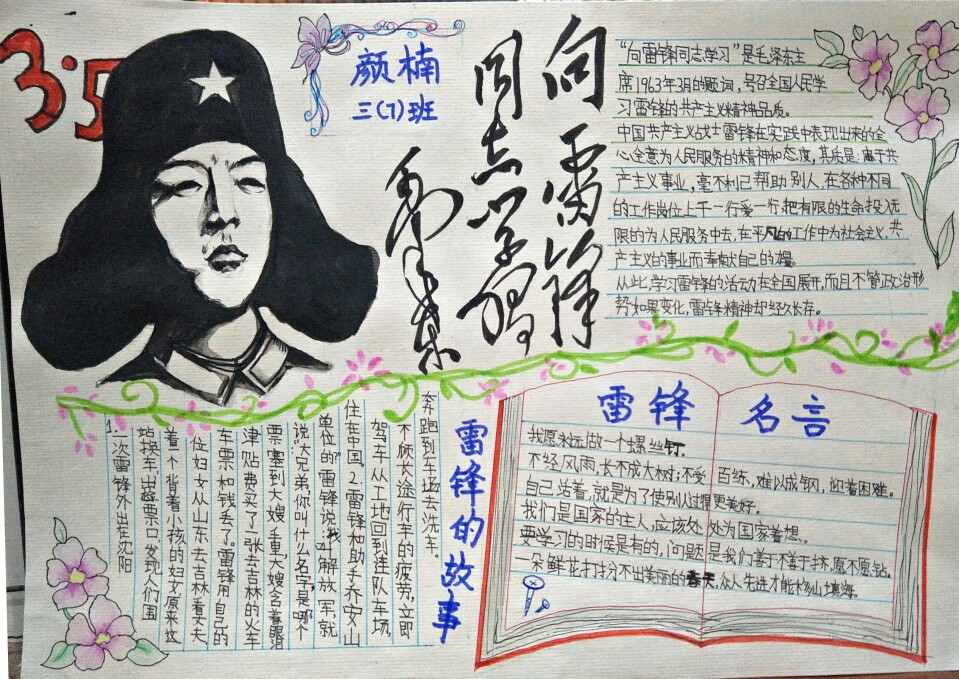 3.5
颜楠
三(7)班
向雷锋
同志学习
毛泽东
“向雷锋同志学习”是毛泽东主
席1963年3月的题词,号召全国人民学
习雷锋的共产主义精神品质。
中国共产主义战士雷锋在实践中表现出来的全
心全意为人民服务的精神和态度,其实质是:忠于共
产主义事业,毫不利己帮助别人,在各种不同
的工作岗位上干一行爱一行,把有限的生命投入无
限的为人民服务中去,在平凡的工作中为社会主义、共
产主义的事业而奉献自己的力量。
从此,学习雷锋的活动在全国展开,而且不管政治形
势如果变化,雷锋精神却经久长存。
雷锋的故事
1.一次雷锋外出在沈阳
站换车,出检票口,发现人们围
着一个背着小孩的妇女,原来这
位妇女从山东去吉林看丈夫
车票和钱丢了。雷锋用自己的
津贴费买了一张去吉林的火车
票塞到大嫂手里,大嫂含着眼泪
说:“大兄弟你叫什么名字,是哪个
单位的”雷锋说:“我叫解放军,就
住在中国。2.雷锋和助手乔安山
驾车从工地回到连队车场,
不顾长途行车的疲劳,立即
奔跑到车边去洗车。
雷锋 名言
我愿永远做一个螺丝钉.
不经风雨,长不成大树;不受 百练,难以成钢,迎着困难。
自己活着,就是为了使别人过得更美好。
我们是国家的主人,应该处处为国家着想.
要学习的时候是有的,问题是我们善于不善于挤,愿不愿钻。
一朵鲜花打扮不出美丽的春天,众人先进才能移山填海.